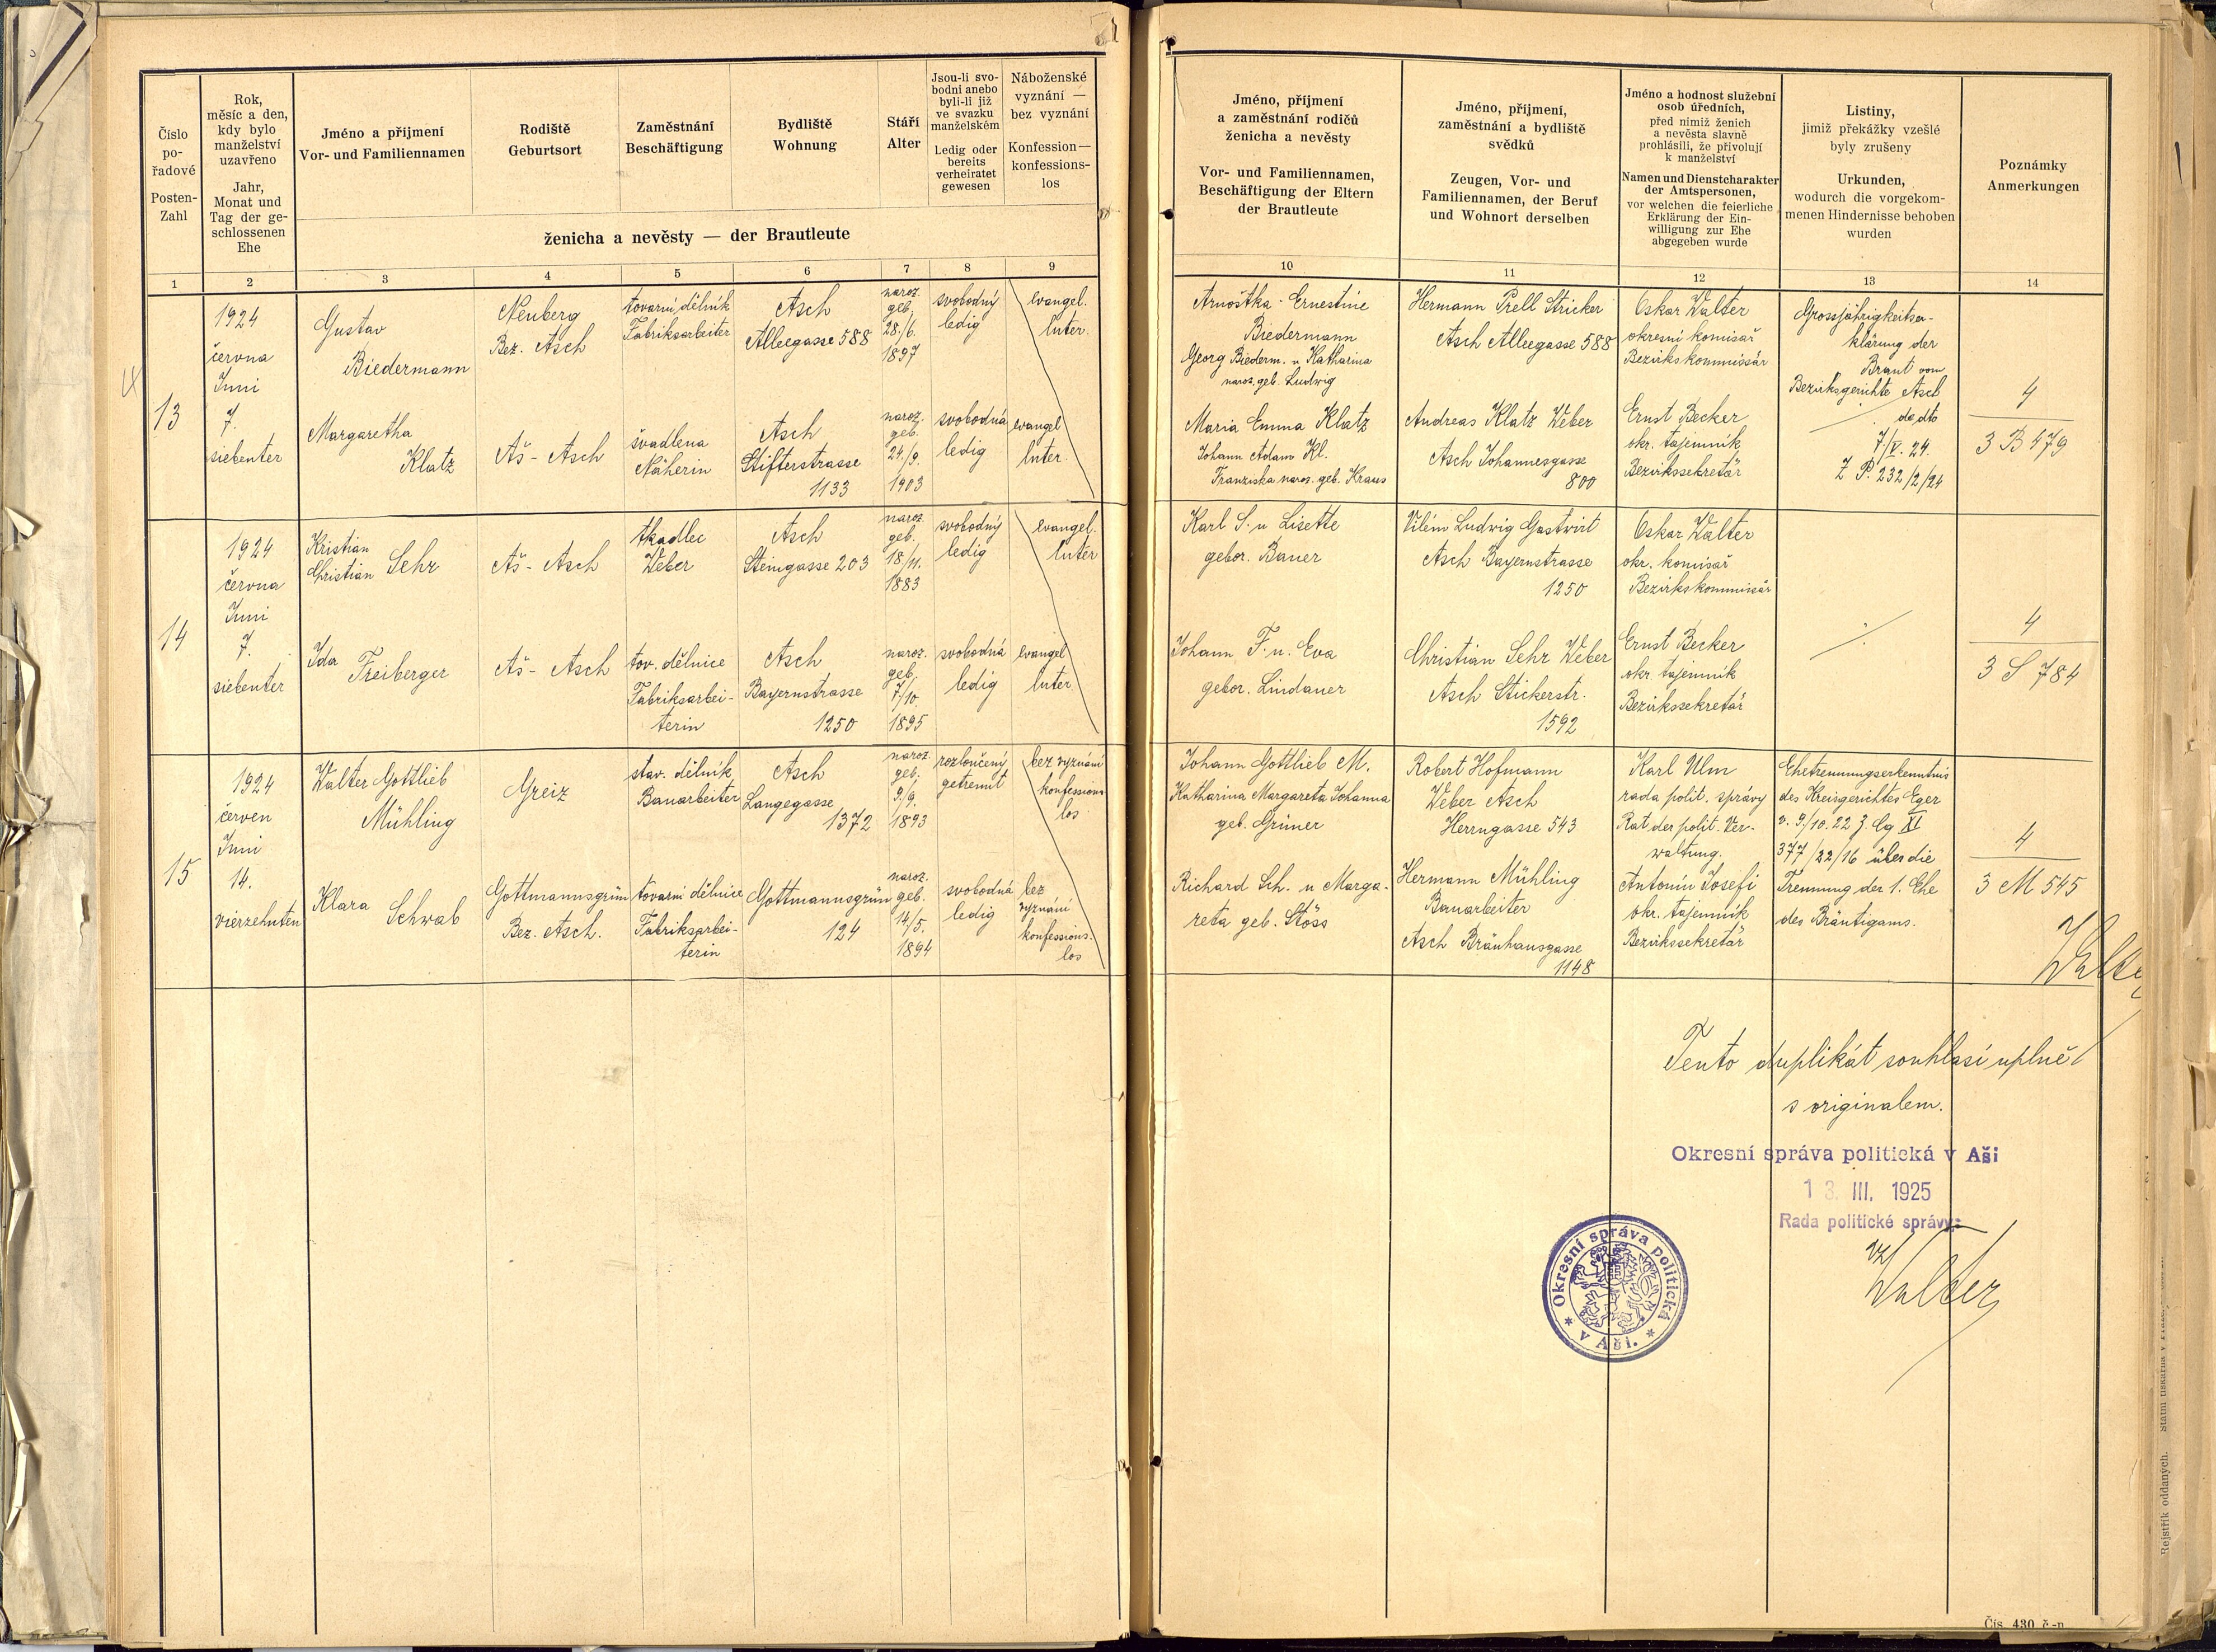 Číslo
po-
řadové
Posten-
Zahl
Rok,
měsíc a den,
kdy bylo
manželství
uzavřeno
Jahr,
Monat und
Tag der ge-
schlossenen
Ehe
Jméno a příjmení
Vor- und Familiennamen
Rodiště
Geburtsort
Zaměstnání
Beschäftigung
Bydliště
Wohnung
Stáří
Alter
Jsou-li svo-
bodni anebo
byli-li již
ve svazku
manželském
Ledig oder
bereits
verheiratet
gewesen
Náboženské
vyznání —
bez vyznání
Konfession—
konfessions-
los
ženicha a nevěsty — der Brautleute
1 2 3 4 5 6 7 8 9
13
1924
června
Juni
7.
siebenter
Gustav
Biedermann
Neuberg
Bez. Asch
tovární dělník
Fabriksarbeiter
Asch
Alleegasse 588
naroz.
geb.
28./6.
1897
svobodný
ledig
evangel.
luter.
Margaretha
Klatz
Aš - Asch
švadlena
Näherin
Asch
Stifterstrasse
1133
naroz.
geb.
24./9.
1903
svobodná
ledig
evangel
luter.
14
1924
června
Juni
7.
siebenter
Kristian
Christian Sehr
Aš - Asch
tkadlec
Weber
Asch
Steingasse 203
naroz.
geb.
18/11.
1883
svobodný
ledig
evangel.
luter
Ida Freiberger
Aš - Asch
tov. dělnice
Fabriksarbei-
terin
Asch
Bayernstrasse
1250
naroz.
geb.
7/10.
1895
svobodná
ledig
evangel
luter
15
1924
červen
Juni
14.
vierzehnten
Walter Gottlieb
Mühling
Greiz
stav. dělník
Bauarbeiter
Asch
Langegasse
1372
naroz.
geb.
9./9.
1893
rozloučený
getrennt
bez vyznání
konfessions
los
Klara Schwab
Gottmannsgrün
Bez. Asch.
tovarní dělnice
Fabriksarbei-
terin
Gottmannsgrün
124
naroz.
geb.
14/5.
1894
svobodná
ledig
bez
vyznání
konfessions.
los
Jméno, příjmení
a zaměstnání rodičů
ženicha a nevěsty
Vor- und Familiennamen,
Beschäftigung der Eltern
der Brautleute
Jméno, příjmení,
zaměstnání a bydliště
svědků
Zeugen, Vor- und
Familiennamen, der Beruf
und Wohnort derselben
Jméno a hodnost služební
osob úředních,
před nimiž ženich
a nevěsta slavně
prohlásili, že přivolují
k manželství
Namen und Dienstcharakter
der Amtspersonen,
vor welchen die feierliche
Erklärung der Ein-
willigung zur Ehe
abgegeben wurde
Listiny,
jimiž překážky vzešlé
byly zrušeny
Urkunden,
wodurch die vorgekom-
menen Hindernisse behoben
wurden
Poznámky
Anmerkungen
10 11 12 13 14
Arnoštka - Ernestine
Biedermann
Georg Biederm. u Katharina
naroz. geb. Ludwig
Hermann Prell Stricker
Asch Alleegasse 588
Oskar Walter
okresní komisař
Bezirkskommissär
Grossjährigkeitser-
klärung der
Braut vom
Bezirksgerichte Asch
de dto
7/V. 24.
Z P. 232/2/24
4
3 B 479
Maria Emma Klatz
Johann Adam Kl.
Franziska naroz. geb. Kraus
Andreas Klatz Weber
Asch Johannesgasse
800
Ernst Becker
okr. tajemník
Bezirkssekretär
Karl S. u Lisette
gebor. Bauer
Vilém Ludwig Gastwirt
Asch Bayernstrasse
1250
Oskar Walter
okr. komisař
Bezirkskommissär
4
3 S 784
Johann F. u. Eva
gebor. Lindauer
Christian Sehr Weber
Asch Stickerstr.
1592
Ernst Becker
okr. tajemník
Bezirkssekretář
Johann Gottlieb M.
Katharina Margareta Johanna
geb. Grüner
Robert Hofmann
Weber Asch
Herrngasse 543
Karl Ulm
rada polit. správy
Rat der polit. Ver-
waltung.
Ehetrennungserkenntnis
des Kreisgerichtes Eger
v. 9./10. 22 Z. Cg XI
377/22/16 über die
Trennung der 1. Ehe
des Bräutigams.
4
3 M 545
Richard Sch. u Marga-
reta geb. Stöss
Hermann Mühling
Bauarbeiter
Asch Bräuhausgasse
1148
Antonín Josefi
okr. tajemník
Bezirkssekretär
Walter
Tento duplikát souhlasí uplně
s originalem.
Okresní správa politická v Aši
13. III. 1925
Rada politické správy:
vz
Walter
Okresní správa politická
* v Aši. *
Čís. 430 č.-n
Rejstřík oddaných.